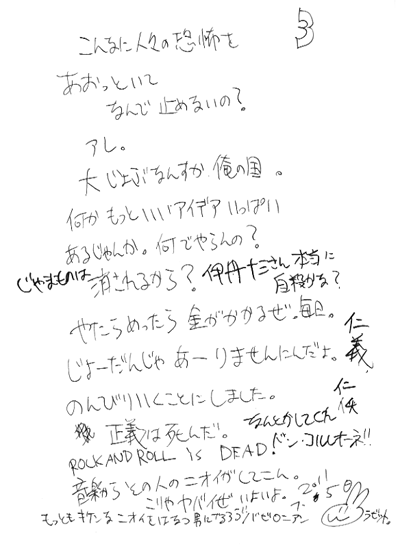 3
こんなに人々の恐怖を
あおっといて
なんで止めないの？
アレ。
大じょぶなんすか 俺の国。
何かもっといいアイデアいっぱい
あるじゃんか。何でやらんの？
じゃまものは
消されるから？ 伊丹十三さん 本当に
自殺かな？
やたらめったら 金がかかるぜ。毎日。
じょーだんじゃ あーりませんにんだよ。
仁義、
のんびりいくことにしました。
仁侠
正義は死んだ。 なんとかしてくれ
ROCK AND ROLL IS DEAD! ドン・コルレオーネ!!
音楽からその人のニオイがしてこん。
こりゃヤバイぜいよいよ。
2011 5
もっともキケンなニオイをはなつ男になろうぜバビロニアン
ラビット。